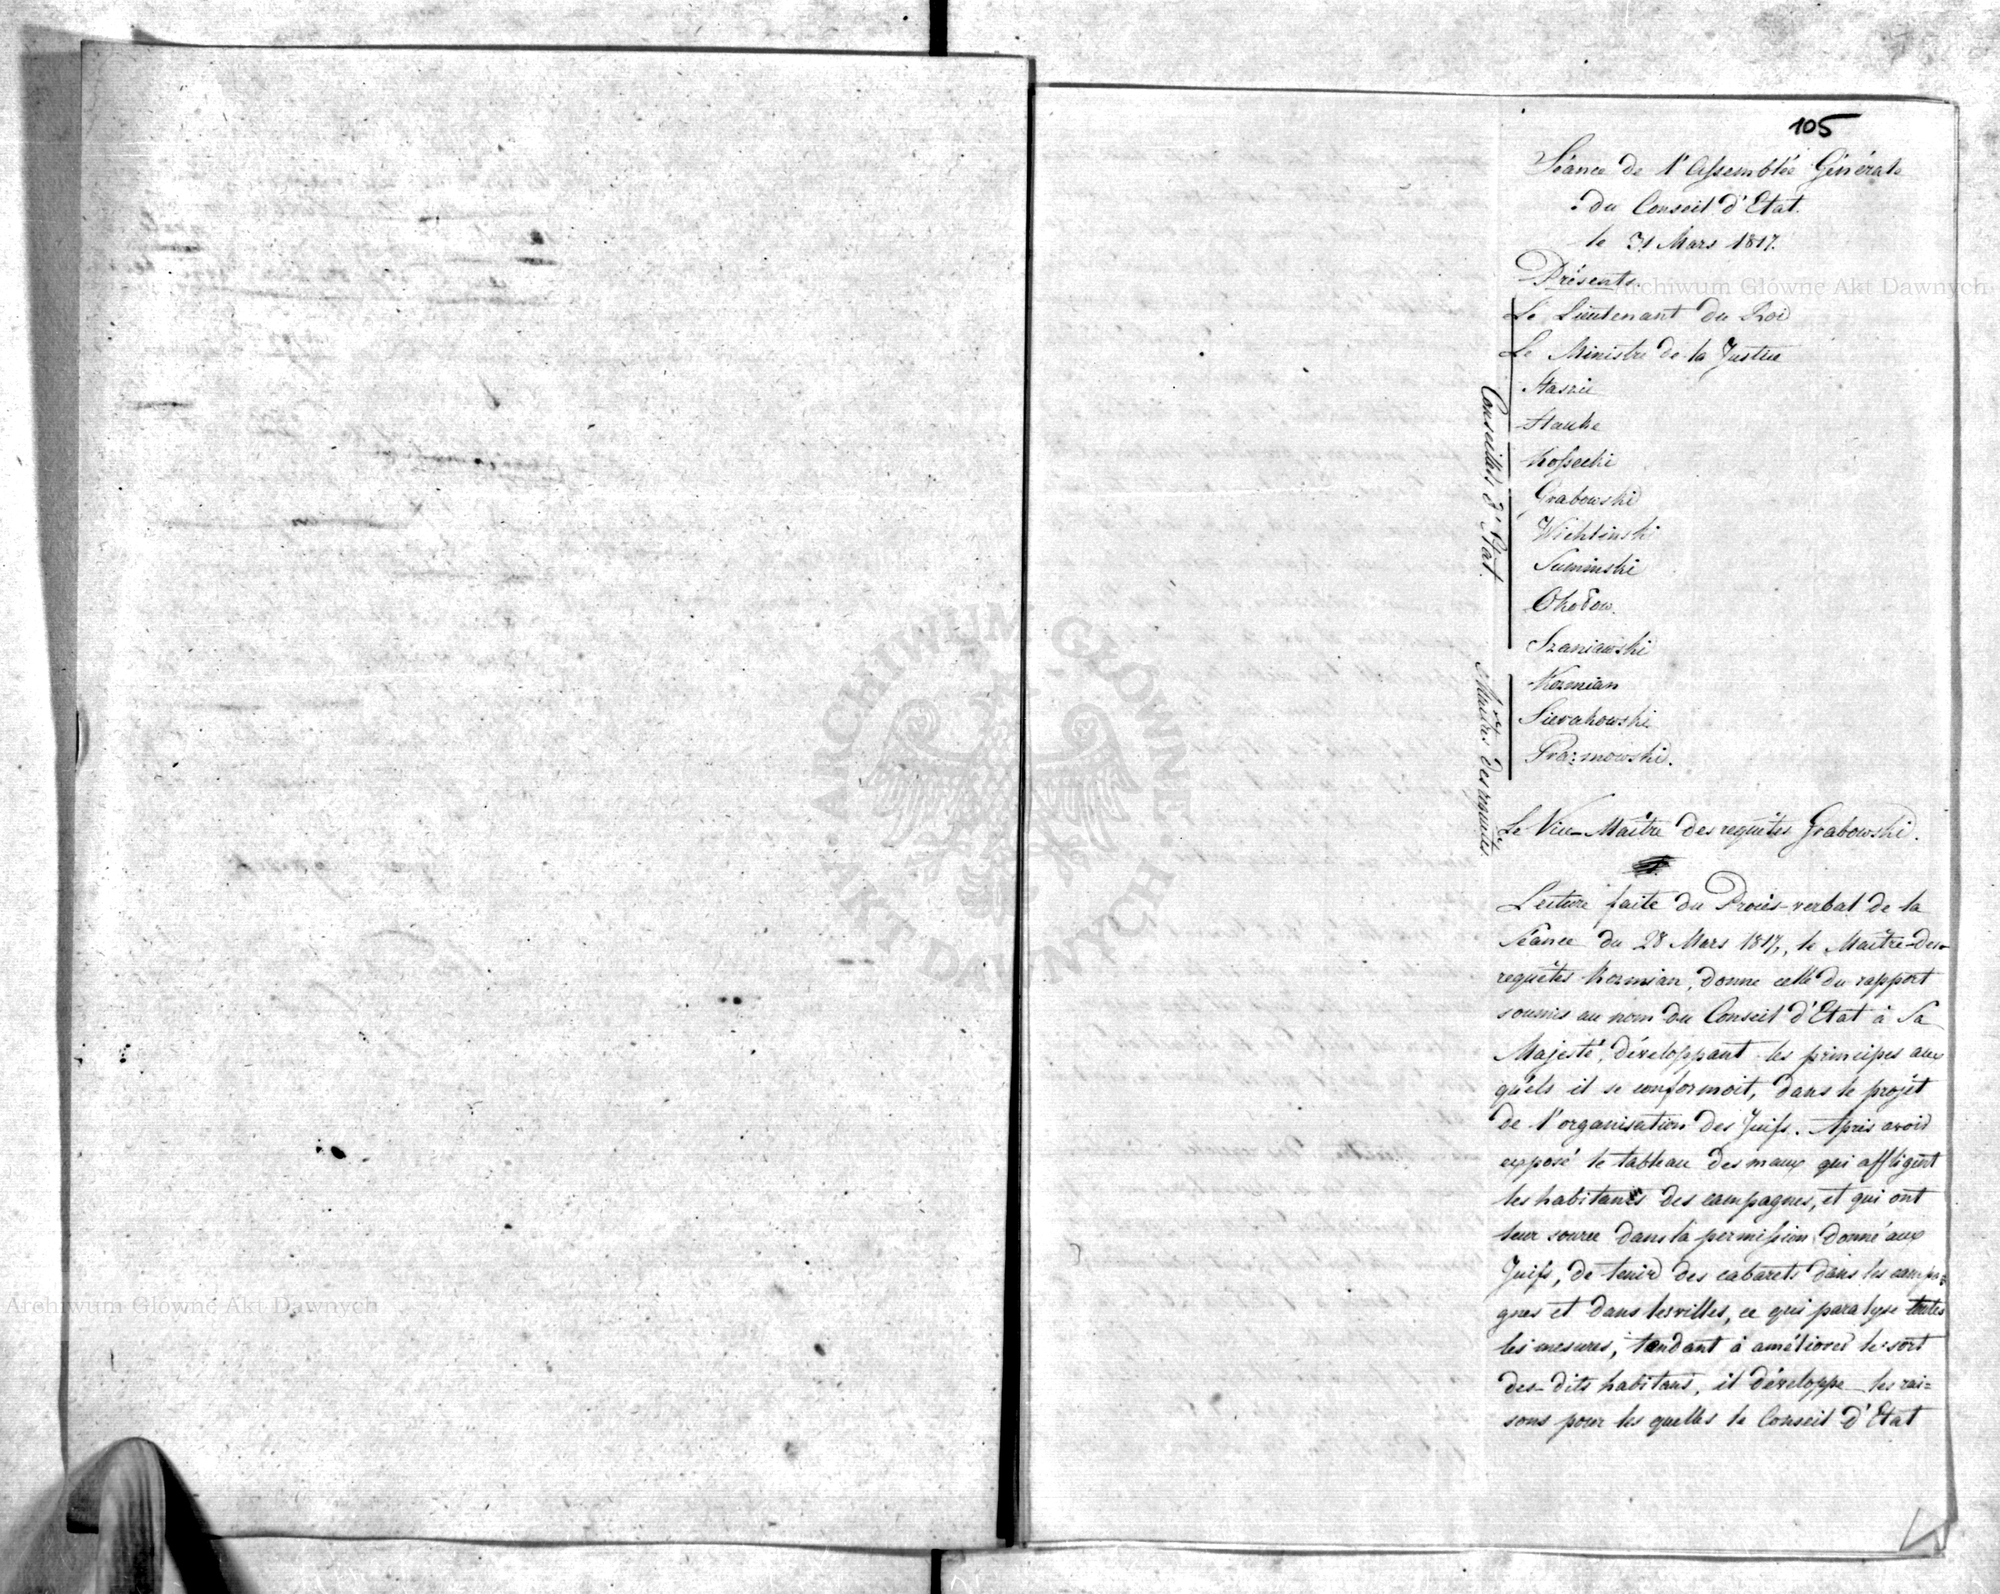 105
Séance de l'Assemblée Générale
du Conseil d'Etat.
le 31 Mars 1817.
Présents.
Le Lieutenant du Roi
Le Ministre de la Justice
Conseillers d'Etat.
Staszic
Hauke
Kossecki
Grabowski
Wichlinski
Suminski
Okołow.
Szaniawski
Maîtres des requêtes.
Kozmian
Sierakowski
Prazmowski.
Le Vice-Maître des requêtes Grabowski.
Lecture faite du Procès-verbal de la
Séance du 28 Mars 1817, le Maître-des-
requêtes Kozmian, donne celle du rapport
soumis au nom du Conseil d'Etat à Sa
Majesté, développant les principes aux
quels il se conformoit, dans le projet
de l'organisation des Juifs. Après avoir
exposé le tableau des maux qui affligent
les habitans des campagnes, et qui ont
leur source dans la permission donné aux
Juifs, de tenir des cabarets dans les campa=
gnes et dans les villes, ce qui paralyse toutes
les mesures, tendant à améliorer le sort
des-dits habitans, il développe les rai=
sons pour les quelles le Conseil d'Etat
Archiwum Główne Akt Dawnych
Archiwum Główne Akt Dawnych
ARCHIWUM GŁÓWNE
AKT DAWNYCH